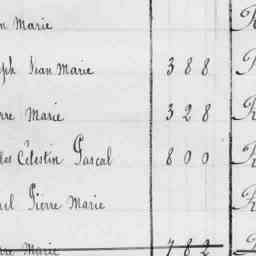 n Marie
ph Jean Marie 388
rre Marie 328
las Célestin Pascal 800
l Pierre Marie
rre Marie 782